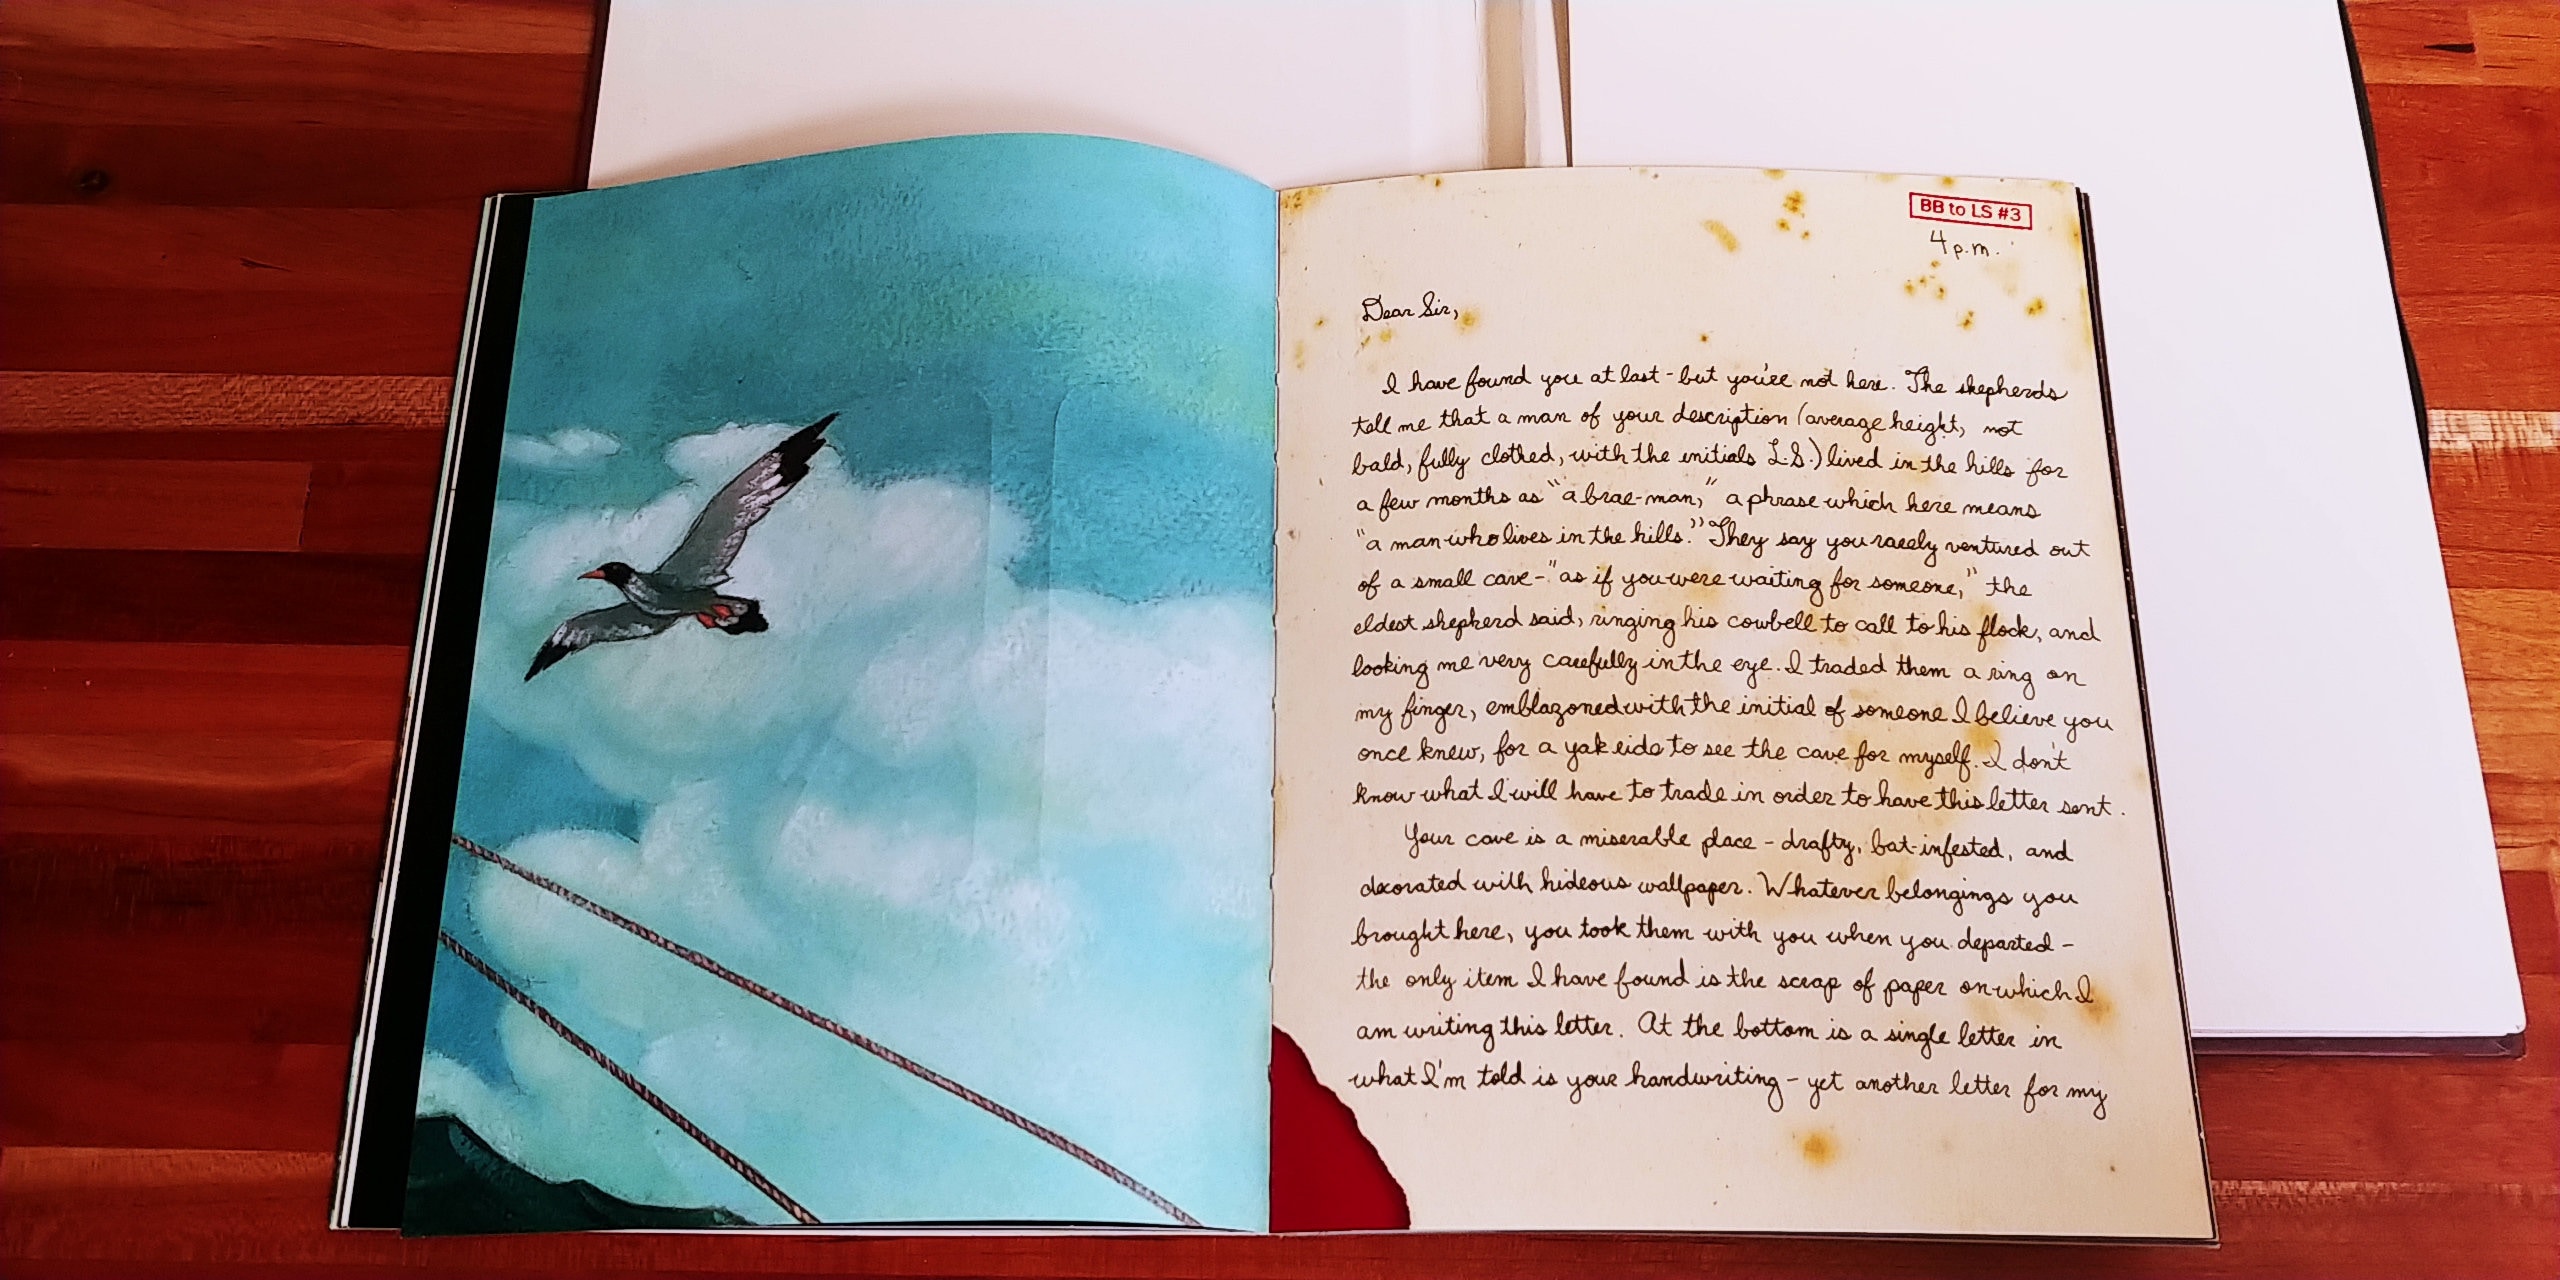 BB to LS #3
4 p.m.
Dear Sir,
I have found you at last - but you're not here. The shepherds
tell me that a man of your description (average height, not
bald, fully clothed, with the initials L.S.) lived in the hills for
a few months as "a brae-man," a phrase which here means
"a man who lives in the hills." They say you rarely ventured out
of a small cave - "as if you were waiting for someone," the
eldest shepherd said, ringing his cowbell to call to his flock, and
looking me very carefully in the eye. I traded them a ring on
my finger, emblazoned with the initial of someone I believe you
once knew, for a yak ride to see the cave for myself. I don't
know what I will have to trade in order to have this letter sent.
Your cave is a miserable place - drafty, bat-infested, and
decorated with hideous wallpaper. Whatever belongings you
brought here, you took them with you when you departed -
the only item I have found is the scrap of paper on which I
am writing this letter. At the bottom is a single letter in
what I'm told is your handwriting - yet another letter for my